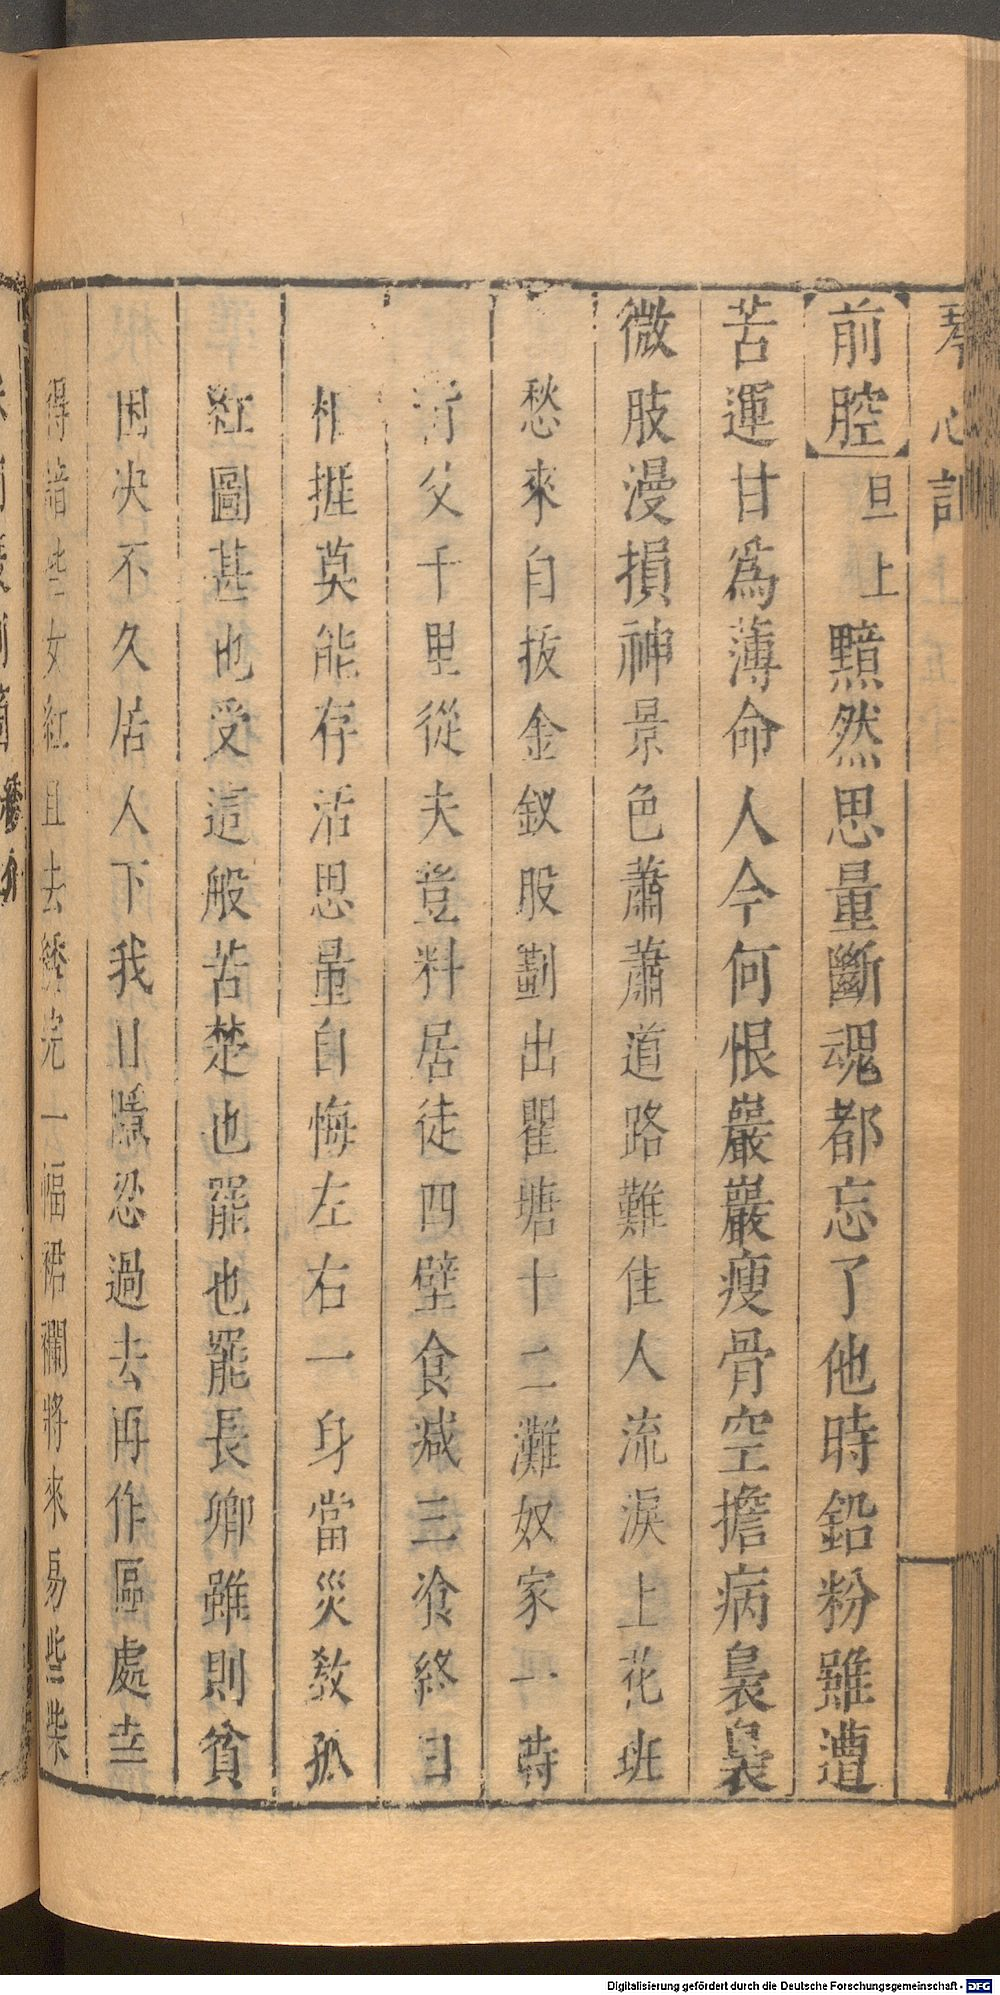 琴心記
前腔 旦上 黯然思量斷魂都忘了他時鉛粉雖遭
苦運甘爲薄命人今何恨巖巖瘦骨空擔病裊裊
微肢漫損神景色蕭蕭道路難佳人流淚上花班
愁來自拔金釵股劃出瞿塘十二灘奴家一時
背父千里從夫豈料居徒四壁食减三飡終日
相捱莫能存活思量自悔左右一身當災敎孤
紅圖甚也受這般苦楚也罷也罷長卿雖則貧
困决不久居人下我且隱忍過去再作區處幸
得諳些女紅且去綉完一幅裙襴將來易些柴
Digitalisierung gefördert durch die Deutsche Forschungsgemeinschaft - DFG